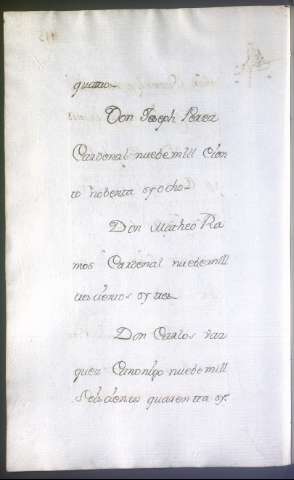 quatro
Don Joseph Perez
Cardenal nuebe mill cien
to nobenta y ocho
Don Matheo Ra
mos Cardenal nuebe mill
trescientos y tres
Don Carlos vaz
quez Canonigo nuebe mill
seiscientos quarentta y